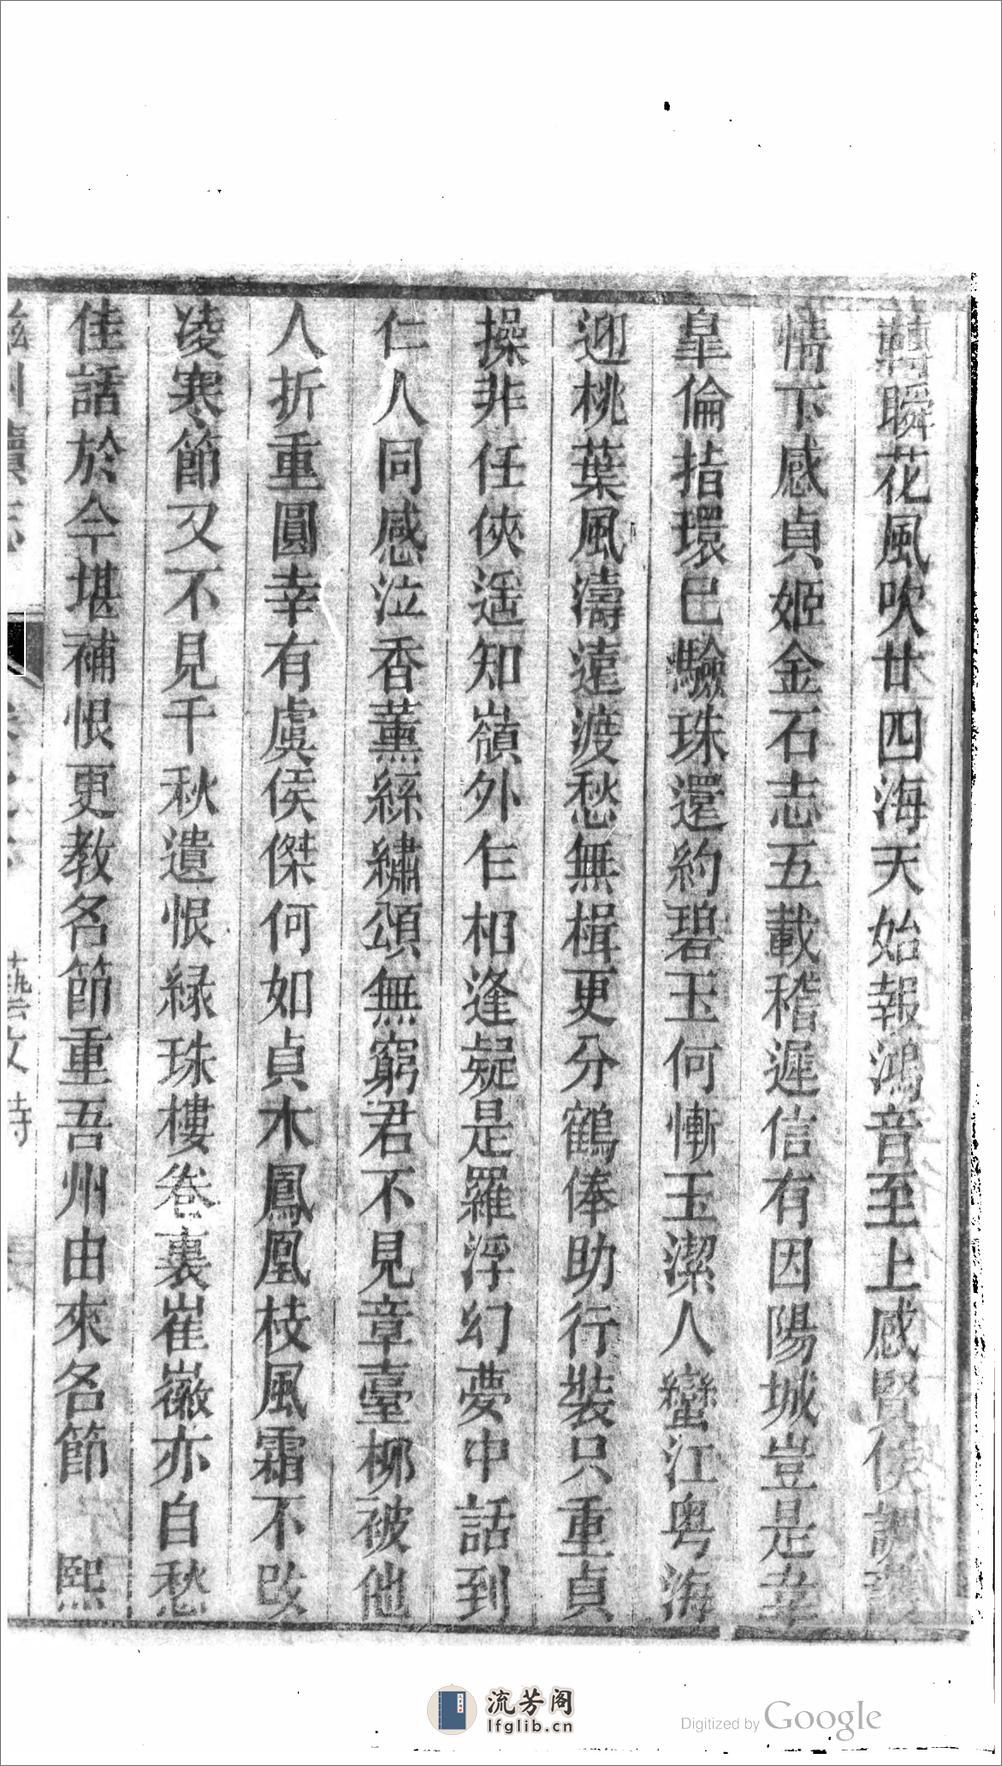 瞬花風吹廿四海天始報鴻音至上感賢侯
情下感貞姬金石志五載稽遲信有因陽城豈是幸
皐倫指環巳驗珠還約碧玉何慚玉潔人蠻江粤海
迎桃葉風濤遠渡愁無楫更分鶴俸助行裝只重貞
操非任俠遥知嶺外乍相逢疑是羅浮幻夢中話到
仁人同感泣香薰絲繡頌無窮君不見章臺柳被他
人折重圓幸有虞侯傑何如貞木鳳凰枝風霜不改
凌寒節又不見千秋遺恨緑珠樓卷裏崔徽亦自愁
佳話於今堪補恨更教名節重吾州由來名節 熙
藝文 詩
流芳阁
lfglib.cn
Digitized by Google